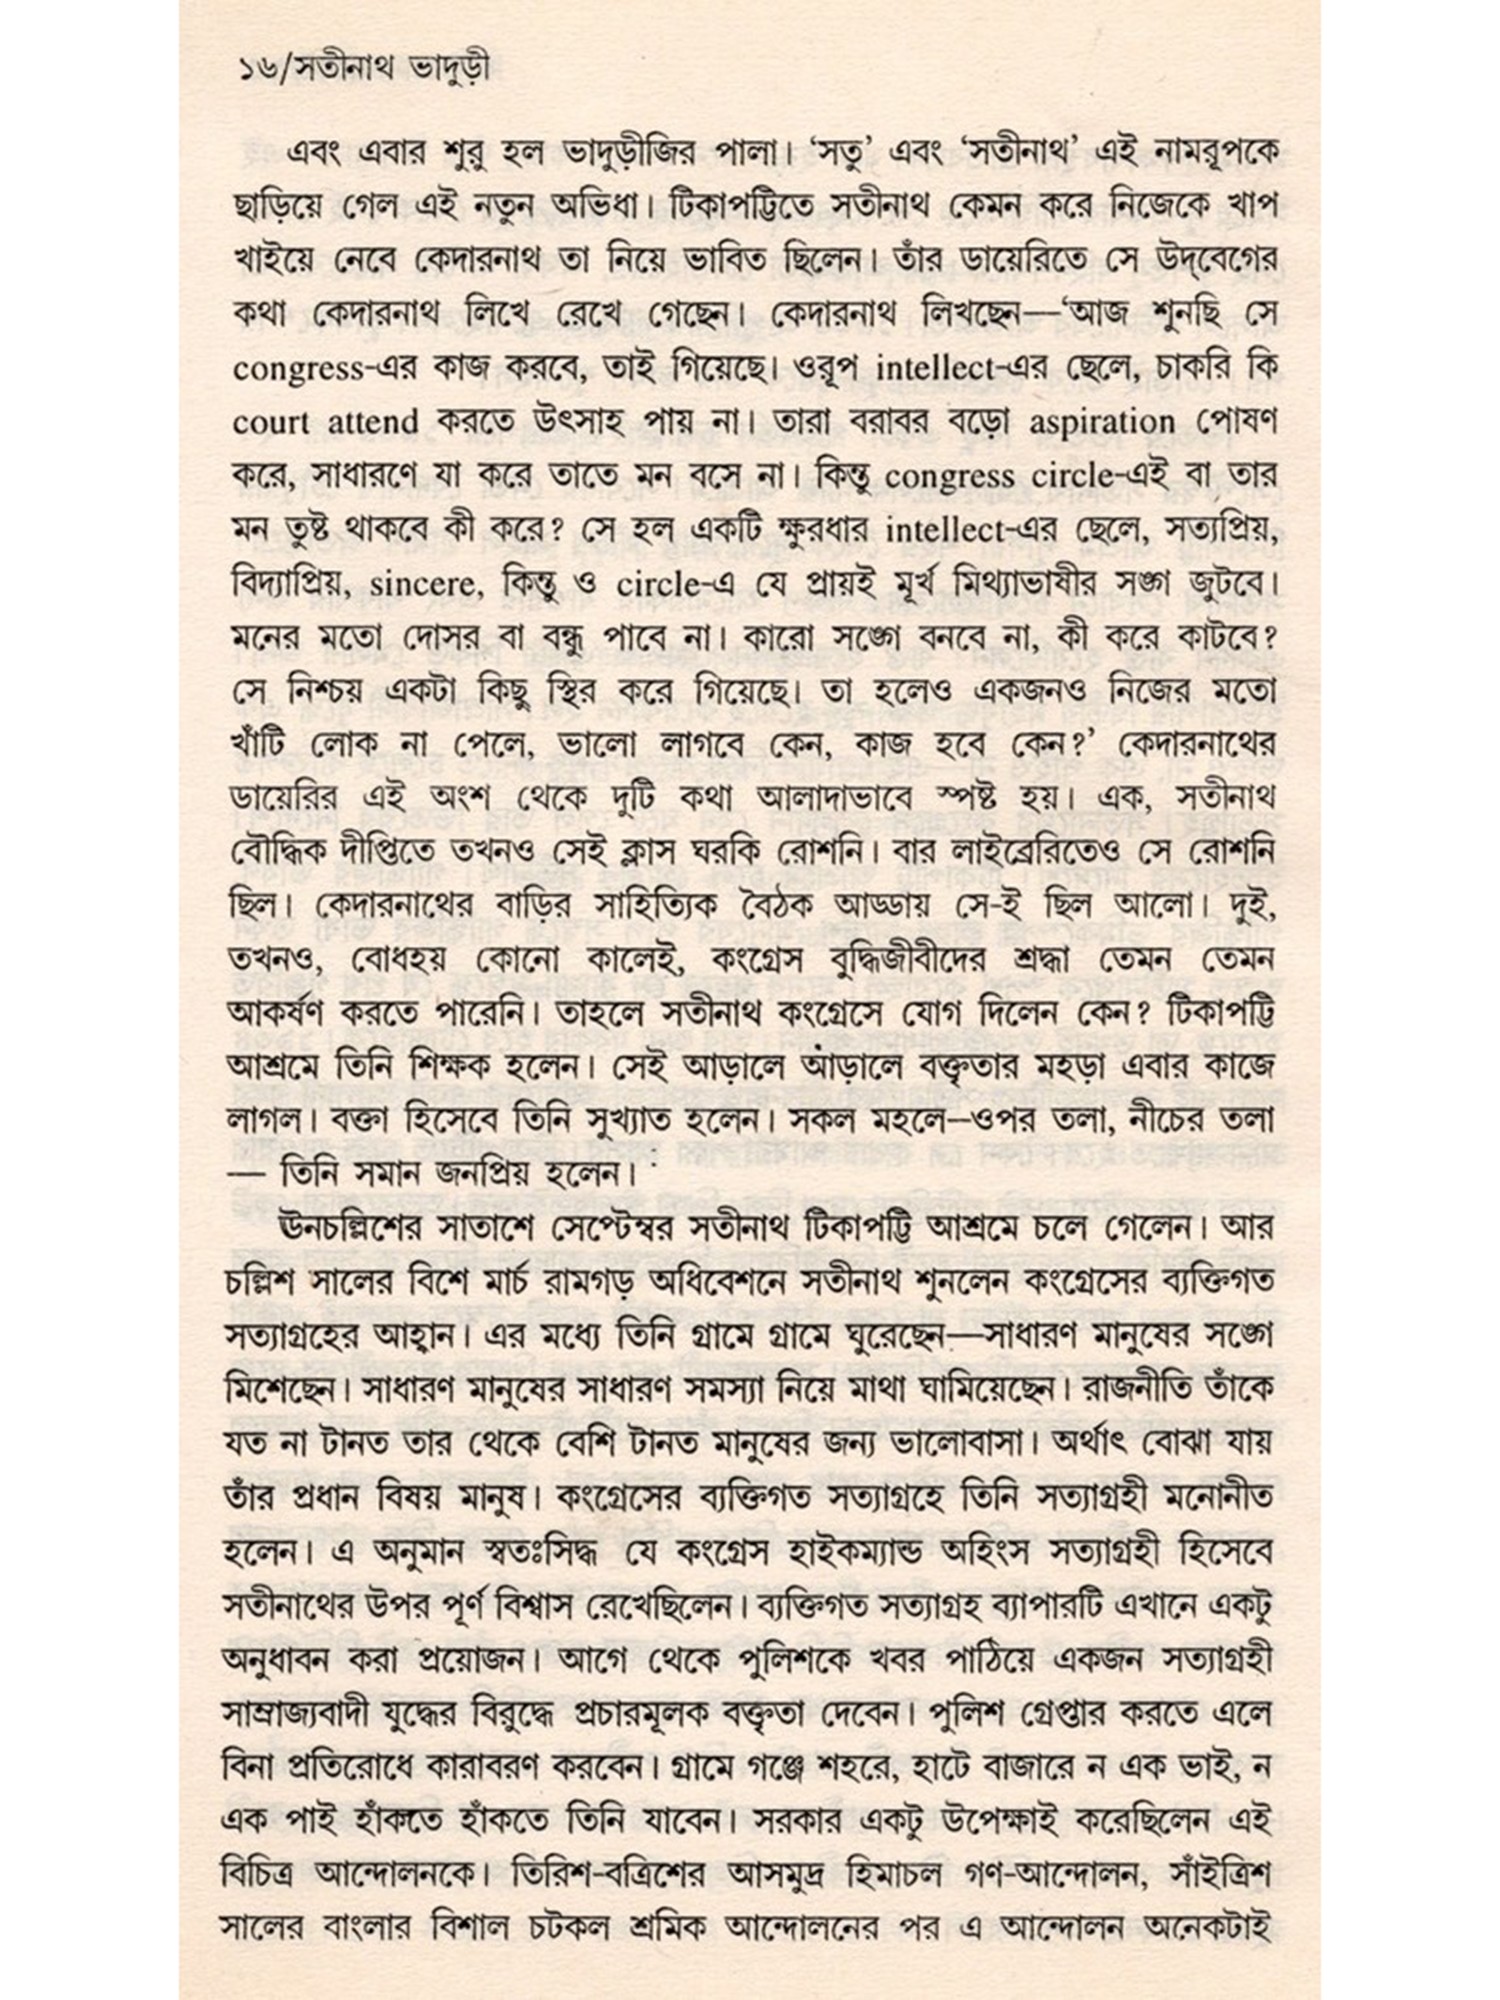 ১৬/সতীনাথ ভাদুড়ী
এবং এবার শুরু হল ভাদুড়ীজির পালা। ‘সতু’ এবং ‘সতীনাথ’ এই নামরূপকে
ছাড়িয়ে গেল এই নতুন অভিধা। টিকাপট্টিতে সতীনাথ কেমন করে নিজেকে খাপ
খাইয়ে নেবে কেদারনাথ তা নিয়ে ভাবিত ছিলেন। তাঁর ডায়েরিতে সে উদ্‌বেগের
কথা কেদারনাথ লিখে রেখে গেছেন। কেদারনাথ লিখছেন—‘আজ শুনছি সে
congress-এর কাজ করবে, তাই গিয়েছে। ওরূপ intellect-এর ছেলে, চাকরি কি
court attend করতে উৎসাহ পায় না। তারা বরাবর বড়ো aspiration পোষণ
করে, সাধারণে যা করে তাতে মন বসে না। কিন্তু congress circle-এই বা তার
মন তুষ্ট থাকবে কী করে? সে হল একটি ক্ষুরধার intellect-এর ছেলে, সত্যপ্রিয়,
বিদ্যাপ্রিয়, sincere, কিন্তু ও circle-এ যে প্রায়ই মূর্খ মিথ্যাভাষীর সঙ্গ জুটবে।
মনের মতো দোসর বা বন্ধু পাবে না। কারো সঙ্গে বনবে না, কী করে কাটবে?
সে নিশ্চয় একটা কিছু স্থির করে গিয়েছে। তা হলেও একজনও নিজের মতো
খাঁটি লোক না পেলে, ভালো লাগবে কেন, কাজ হবে কেন?’ কেদারনাথের
ডায়েরির এই অংশ থেকে দুটি কথা আলাদাভাবে স্পষ্ট হয়। এক, সতীনাথ
বৌদ্ধিক দীপ্তিতে তখনও সেই ক্লাস ঘরকি রোশনি। বার লাইব্রেরিতেও সে রোশনি
ছিল। কেদারনাথের বাড়ির সাহিত্যিক বৈঠক আড্ডায় সে-ই ছিল আলো। দুই,
তখনও, বোধহয় কোনো কালেই, কংগ্রেস বুদ্ধিজীবীদের শ্রদ্ধা তেমন তেমন
আকর্ষণ করতে পারেনি। তাহলে সতীনাথ কংগ্রেসে যোগ দিলেন কেন? টিকাপট্টি
আশ্রমে তিনি শিক্ষক হলেন। সেই আড়ালে আঁড়ালে বক্তৃতার মহড়া এবার কাজে
লাগল। বক্তা হিসেবে তিনি সুখ্যাত হলেন। সকল মহলে—ওপর তলা, নীচের তলা
— তিনি সমান জনপ্রিয় হলেন।
ঊনচল্লিশের সাতাশে সেপ্টেম্বর সতীনাথ টিকাপট্টি আশ্রমে চলে গেলেন। আর
চল্লিশ সালের বিশে মার্চ রামগড় অধিবেশনে সতীনাথ শুনলেন কংগ্রেসের ব্যক্তিগত
সত্যাগ্রহের আহ্বান। এর মধ্যে তিনি গ্রামে গ্রামে ঘুরেছেন—সাধারণ মানুষের সঙ্গে
মিশেছেন। সাধারণ মানুষের সাধারণ সমস্যা নিয়ে মাথা ঘামিয়েছেন। রাজনীতি তাঁকে
যত না টানত তার থেকে বেশি টানত মানুষের জন্য ভালোবাসা। অর্থাৎ বোঝা যায়
তাঁর প্রধান বিষয় মানুষ। কংগ্রেসের ব্যক্তিগত সত্যাগ্রহে তিনি সত্যাগ্রহী মনোনীত
হলেন। এ অনুমান স্বতঃসিদ্ধ যে কংগ্রেস হাইকম্যান্ড অহিংস সত্যাগ্রহী হিসেবে
সতীনাথের উপর পূর্ণ বিশ্বাস রেখেছিলেন। ব্যক্তিগত সত্যাগ্রহ ব্যাপারটি এখানে একটু
অনুধাবন করা প্রয়োজন। আগে থেকে পুলিশকে খবর পাঠিয়ে একজন সত্যাগ্রহী
সাম্রাজ্যবাদী যুদ্ধের বিরুদ্ধে প্রচারমূলক বক্তৃতা দেবেন। পুলিশ গ্রেপ্তার করতে এলে
বিনা প্রতিরোধে কারাবরণ করবেন। গ্রামে গঞ্জে শহরে, হাটে বাজারে ন এক ভাই, ন
এক পাই হাঁকতে হাঁকতে তিনি যাবেন। সরকার একটু উপেক্ষাই করেছিলেন এই
বিচিত্র আন্দোলনকে। তিরিশ-বত্রিশের আসমুদ্র হিমাচল গণ-আন্দোলন, সাঁইত্রিশ
সালের বাংলার বিশাল চটকল শ্রমিক আন্দোলনের পর এ আন্দোলন অনেকটাই